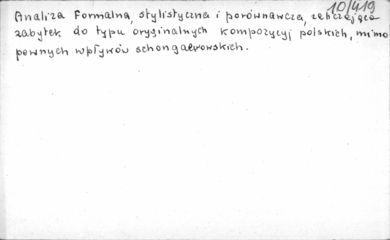 10/419
Analiza formalna, stylistyczna i porównawcza, zaliczająca
zabytek do typu oryginalnych kompozycyj polskich, mimo
pewnych wpływów schongauerowskich.